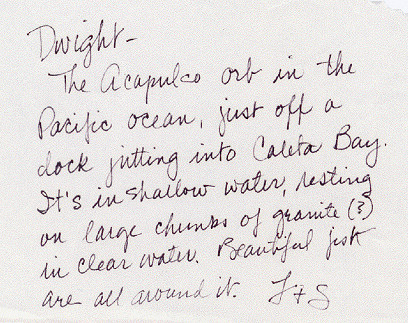 Dwight-
The Acapulco orb in the
Pacific ocean, just off a
dock jutting into Caleta Bay.
It's in shallow water, resting
on large chunks of granite (?)
in clear water. Beautiful fish
are all around it. J+S